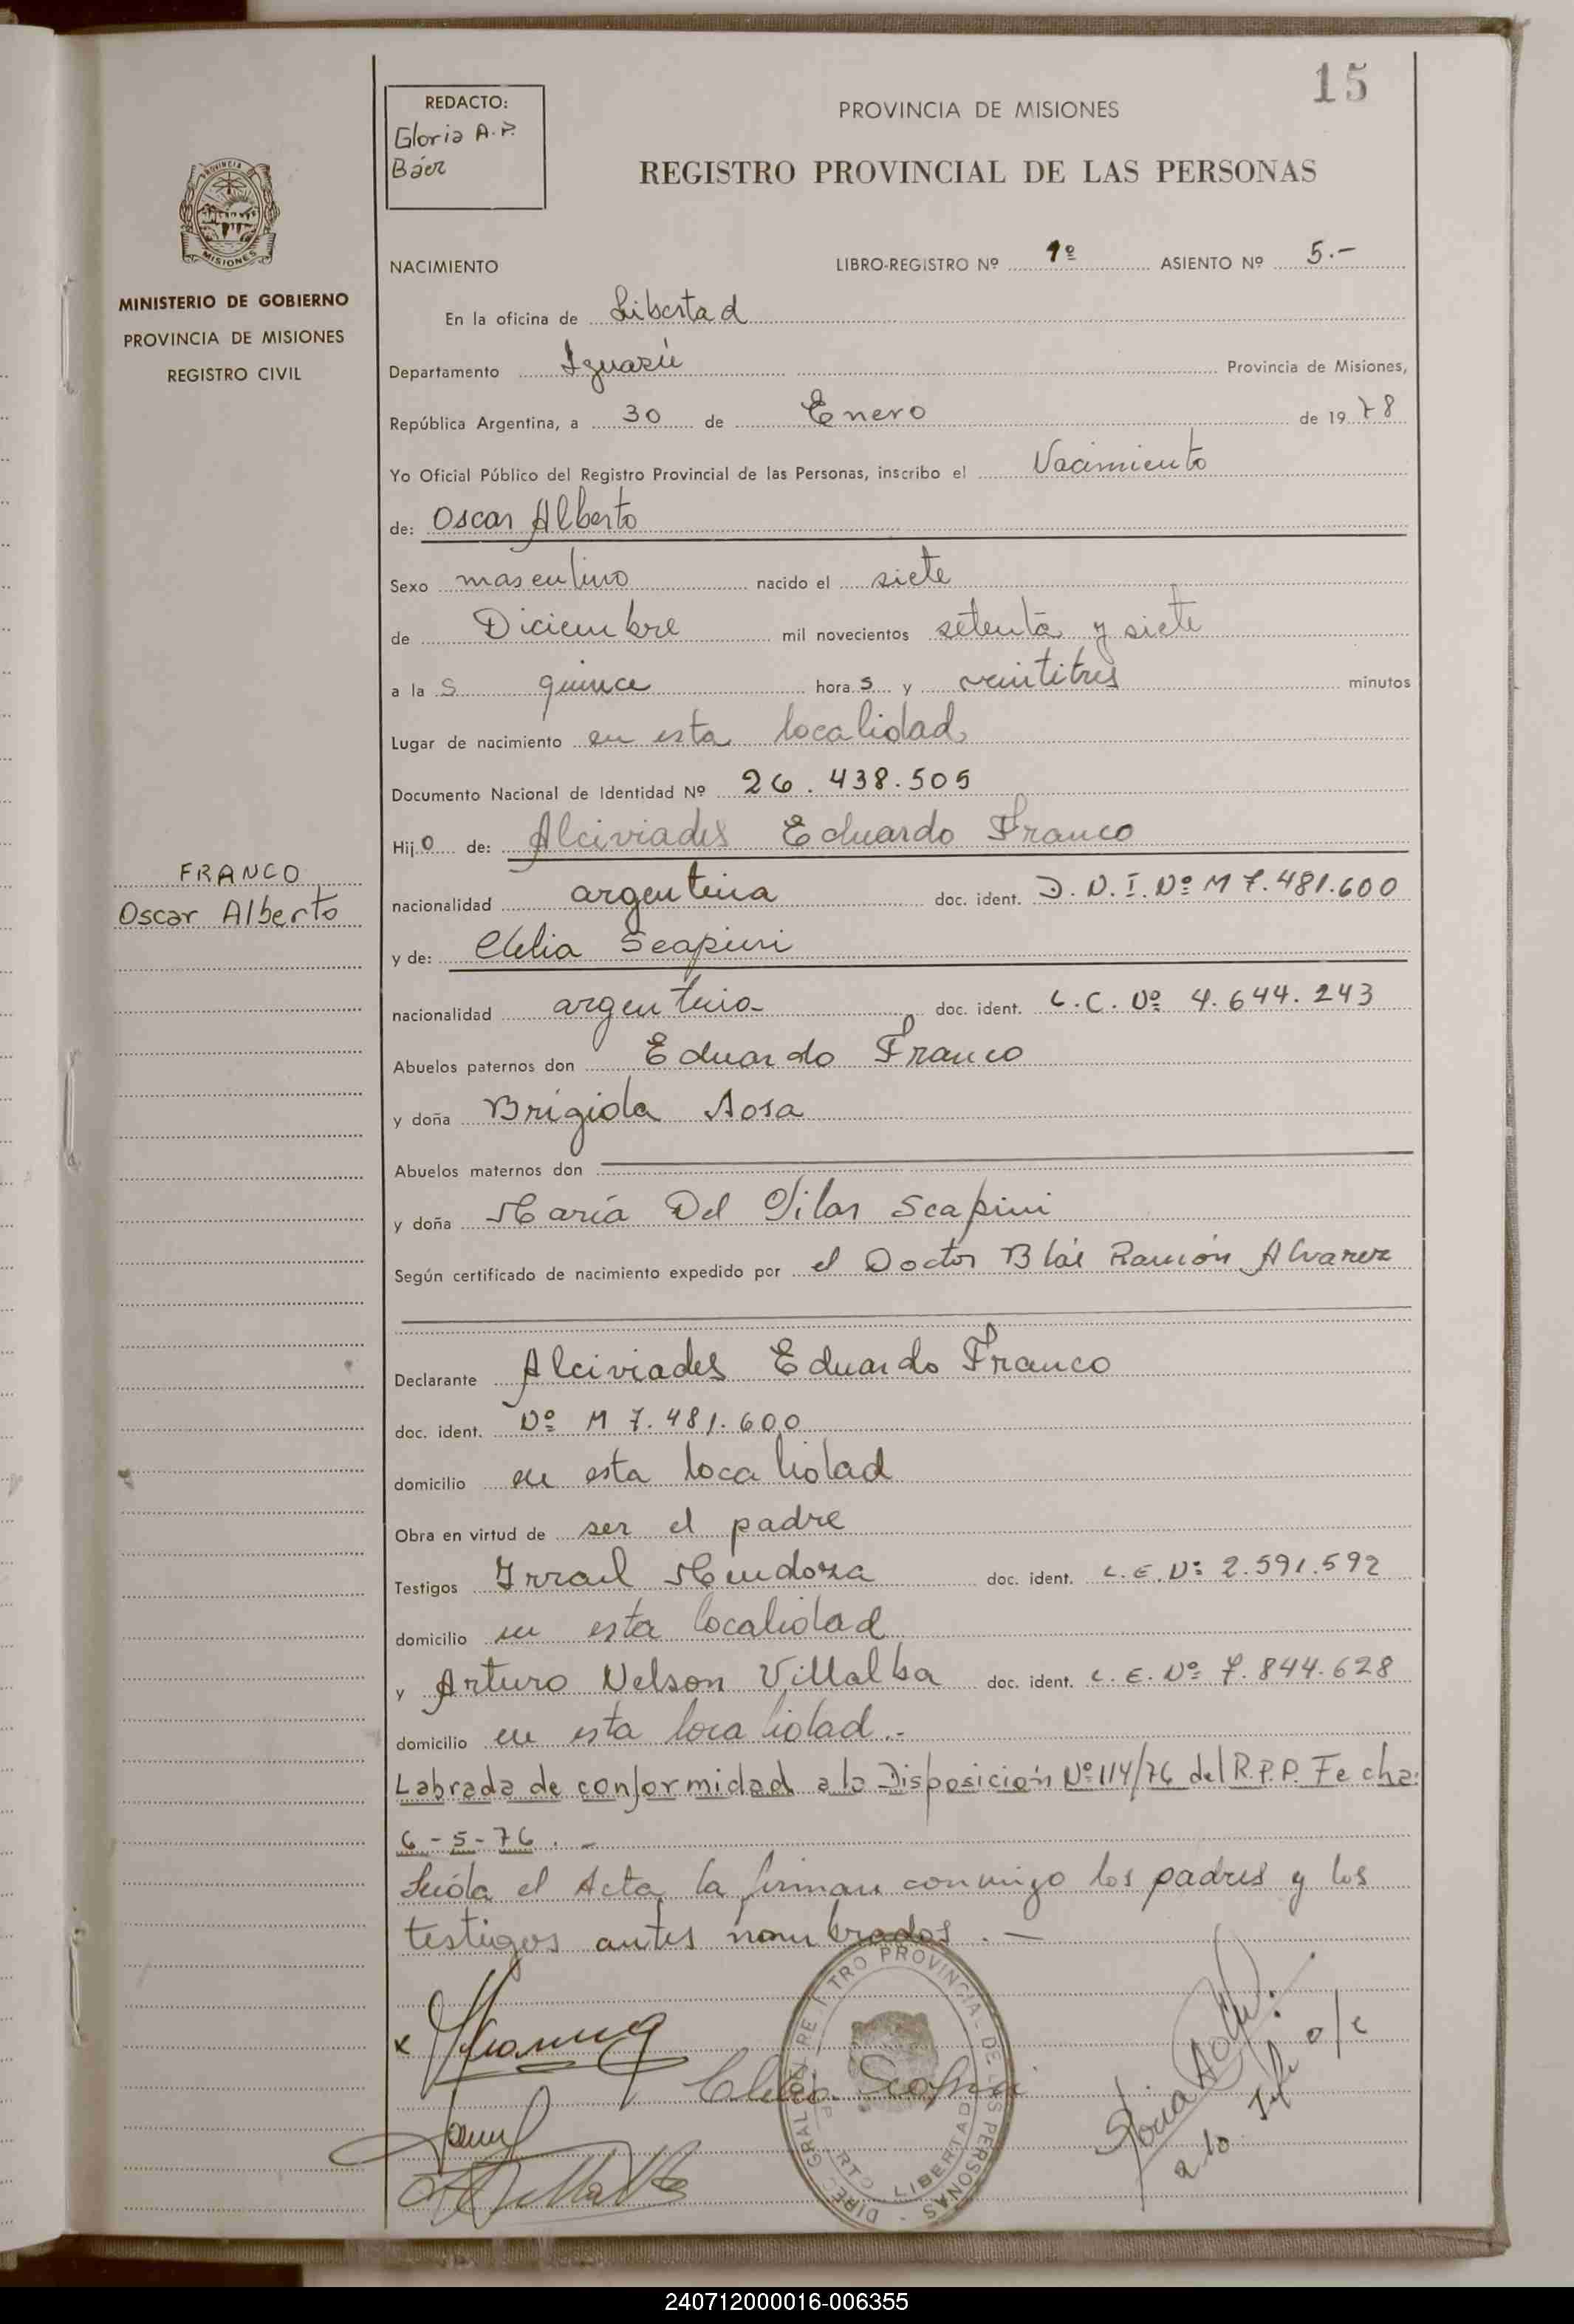 15
REDACTO:
Gloria A. P.
Báez
PROVINCIA DE MISIONES
REGISTRO PROVINCIAL DE LAS PERSONAS
PROVINCIA
MISIONES
MINISTERIO DE GOBIERNO
PROVINCIA DE MISIONES
REGISTRO CIVIL
NACIMIENTO LIBRO-REGISTRO Nº 1º ASIENTO Nº 5.-
En la oficina de Libertad
Departamento Iguazú Provincia de Misiones,
República Argentina, a 30 de Enero de 1978
Yo Oficial Público del Registro Provincial de las Personas, inscribo el Nacimiento
de: Oscar Alberto
Sexo masculino nacido el siete
de Diciembre mil novecientos setenta y siete
a las quince horas y veintitres minutos
Lugar de nacimiento en esta localidad
Documento Nacional de Identidad Nº 26.438.505
Hijo de: Alciviades Eduardo Franco
FRANCO
Oscar Alberto
nacionalidad argentina doc. ident. D.N.I. Nº M 7.481.600
y de: Clelia Scapini
nacionalidad argentina doc. ident. L.C. Nº 4.644.243
Abuelos paternos don Eduardo Franco
y doña Brígida Sosa
Abuelos maternos don
y doña María Del Pilar Scapini
Según certificado de nacimiento expedido por el Doctor Blás Ramón Alvarez
Declarante Alciviades Eduardo Franco
doc. ident. Nº M 7.481.600
domicilio en esta localidad
Obra en virtud de ser el padre
Testigos Mendoza doc. ident. L.E. Nº 2.591.592
domicilio en esta localidad
y Arturo Nelson Villalba doc. ident. L.E. Nº 7.844.628
domicilio en esta localidad.-
Labrada de conformidad a la Disposición Nº 114/76 del R.P.P. Fecha:
6-5-76.-
Leída el Acta, la firman conmigo los padres y los
testigos antes nombrados.-
Clelia Scapini
DIREC GRAL REGISTRO PROVINCIAL DE LAS PERSONAS
LIBERTAD
240712000016-006355